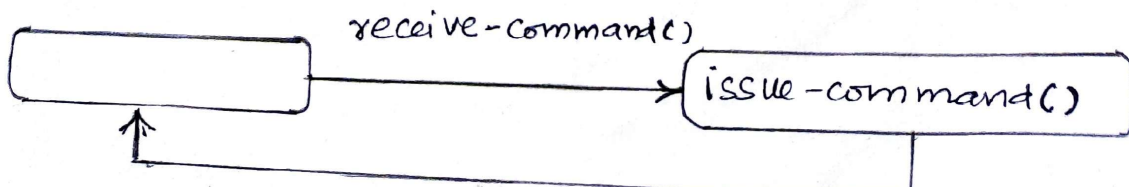 receive-command()
issue-command()